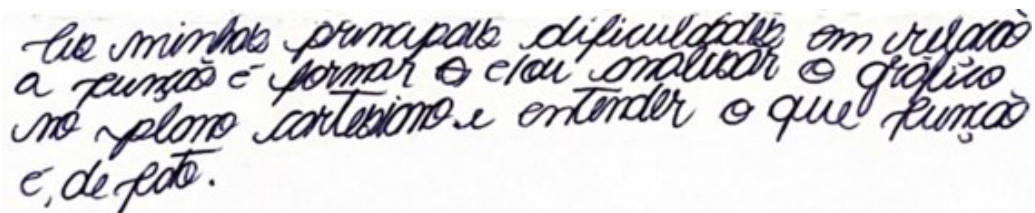 As minhas principais dificuldades em relação
a função é formar e/ou analisar o gráfico
no plano cartesiano e entender o que função
é, de fato.